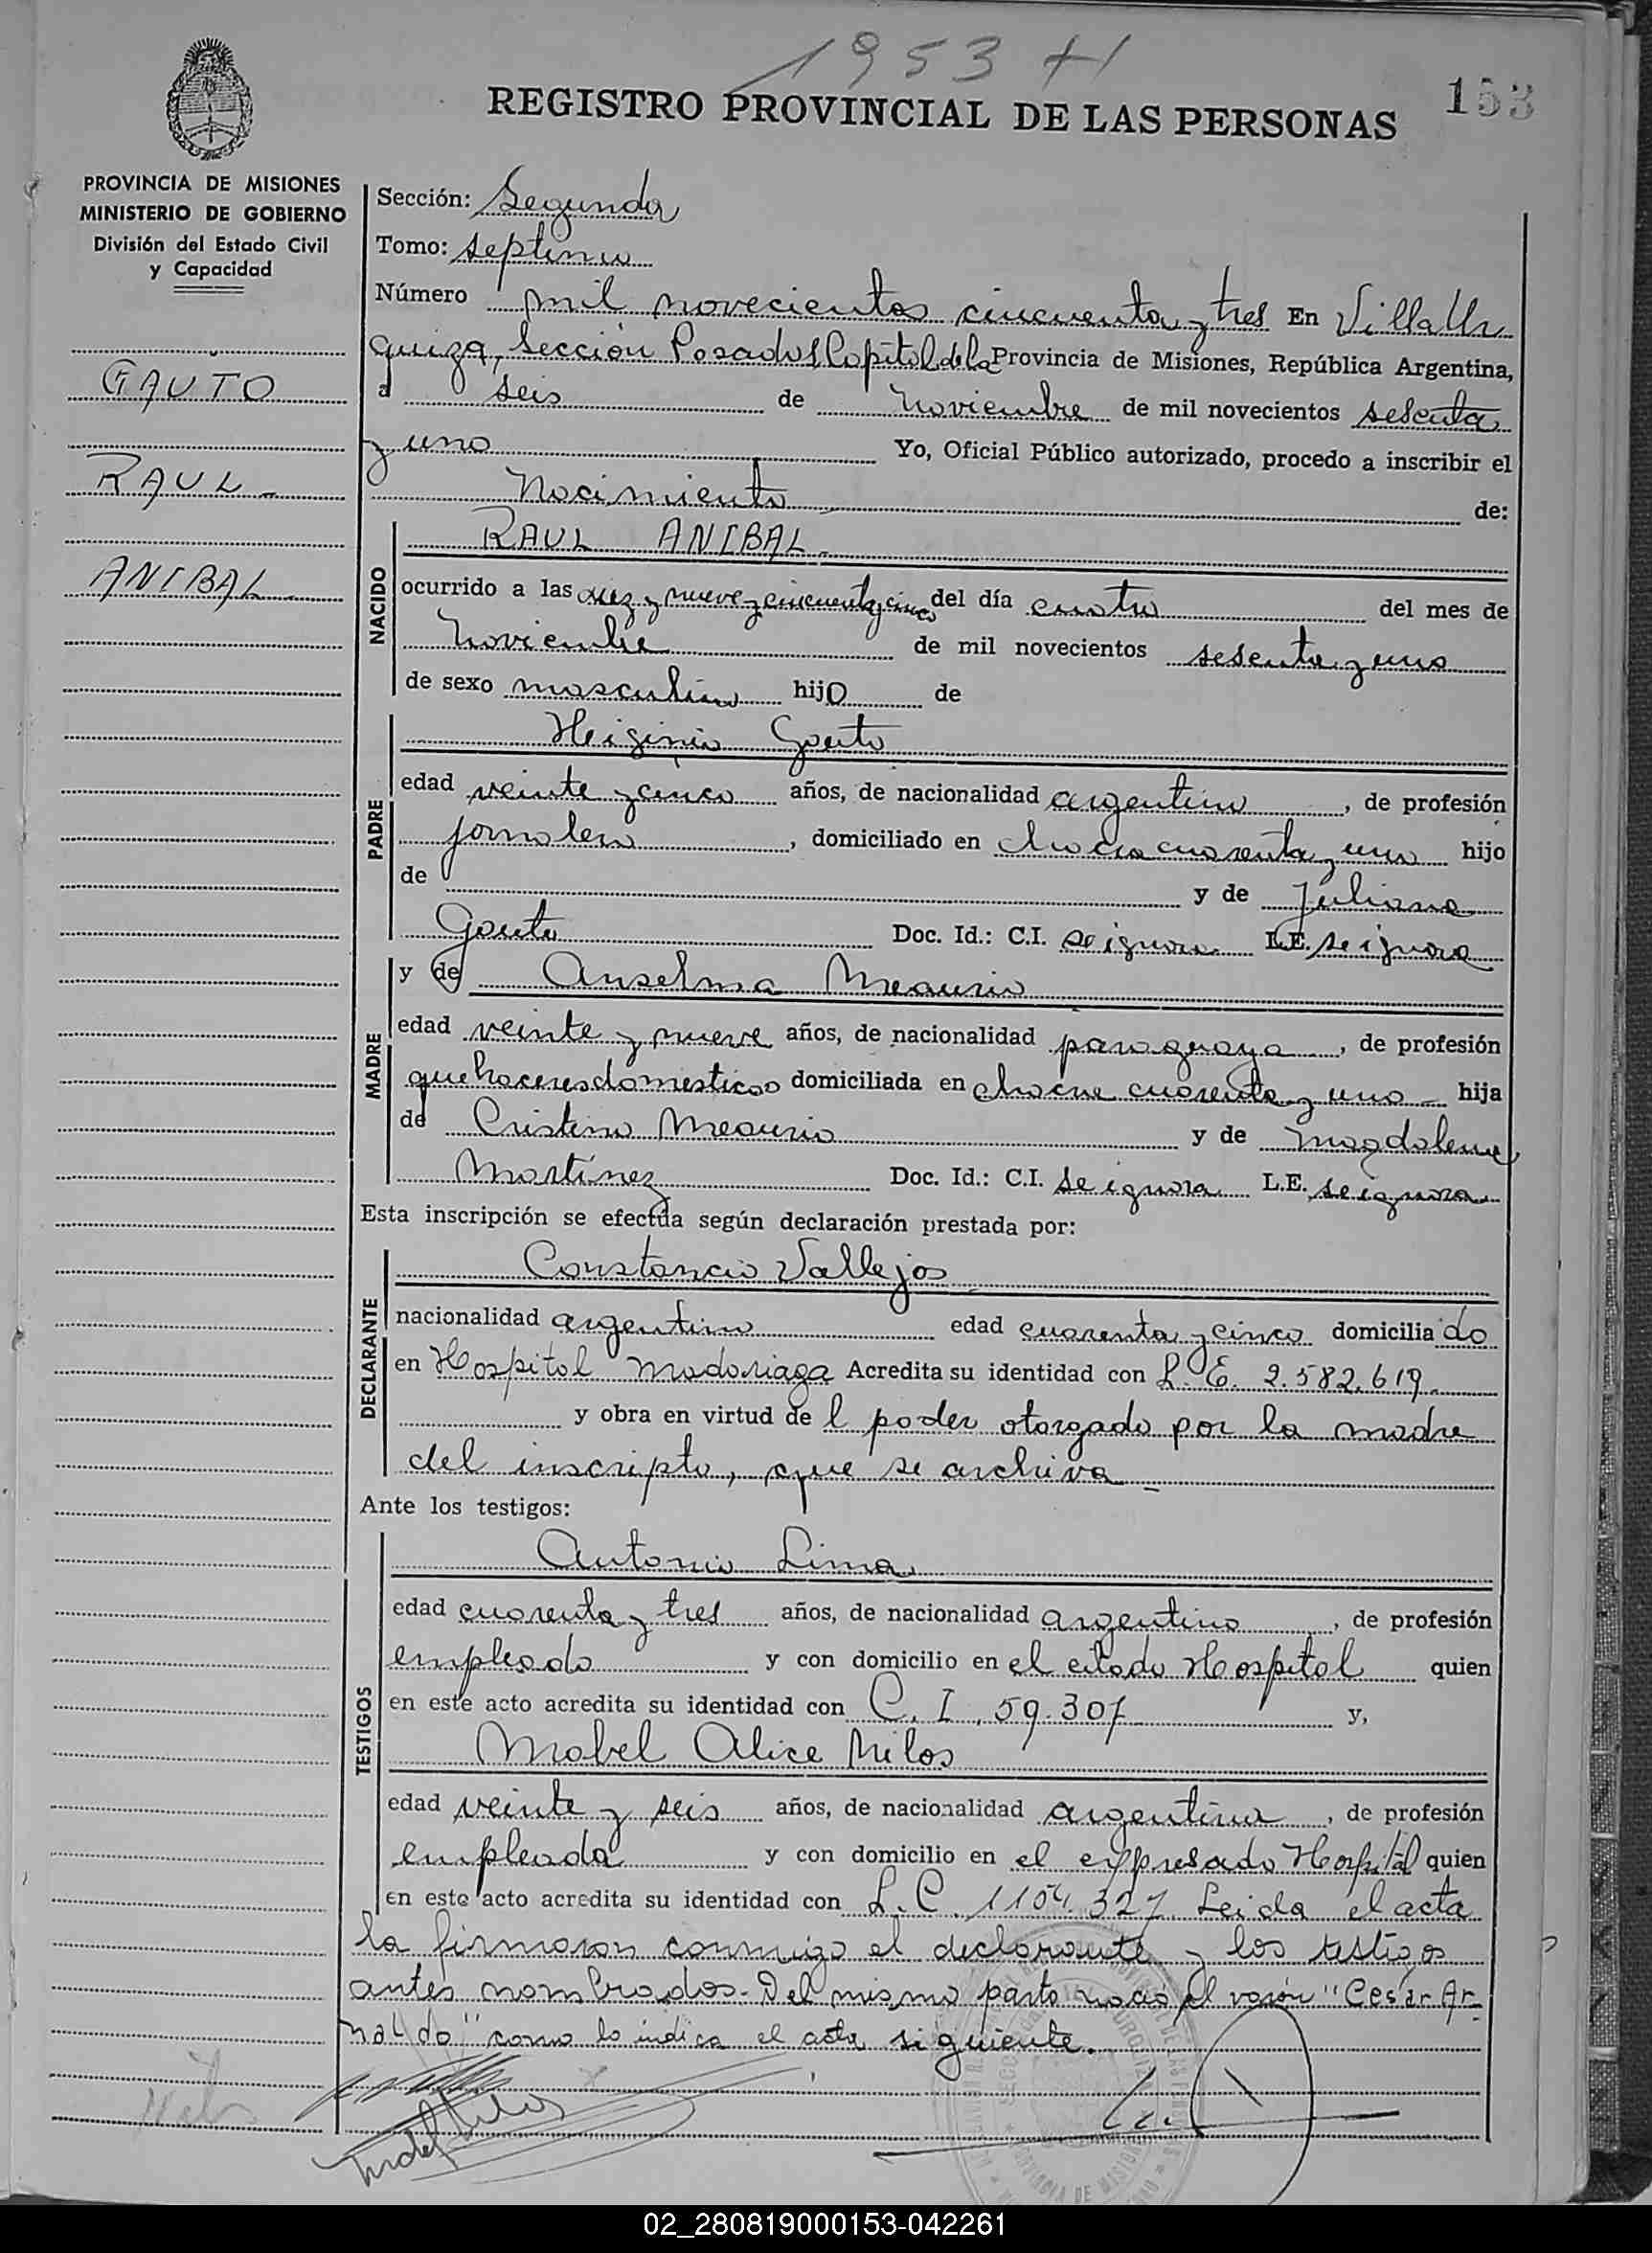 1953 H
REGISTRO PROVINCIAL DE LAS PERSONAS
153
PROVINCIA DE MISIONES
MINISTERIO DE GOBIERNO
División del Estado Civil
y Capacidad
GAUTO
RAUL
ANIBAL
Sección: Segunda
Tomo: septimo
Número mil novecientos cincuenta y tres En Villa Ur
quiza, Sección Posadas Capital de la Provincia de Misiones, República Argentina,
a seis de Noviembre de mil novecientos sesenta
y uno Yo, Oficial Público autorizado, procedo a inscribir el
Nacimiento de:
NACIDO
RAUL ANIBAL
ocurrido a las diez y nueve y cincuenta y cinco del día cuatro del mes de
Noviembre de mil novecientos sesenta y uno
de sexo masculino hijo de
PADRE
Higinio Gauto
edad veinte y cinco años, de nacionalidad argentino, de profesión
jornalero, domiciliado en Chacra cuarenta y uno hijo
de y de Juliana
Gauto Doc. Id.: C.I. se ignora L.E. se ignora
MADRE
y de Anselma Meaurio
edad veinte y nueve años, de nacionalidad paraguaya, de profesión
quehaceres domesticos domiciliada en chacra cuarenta y uno hija
de Cristino Meaurio y de Magdalena
Martínez Doc. Id.: C.I. se ignora L.E. se ignora
Esta inscripción se efectúa según declaración prestada por:
DECLARANTE
Constancio Vallejos
nacionalidad argentino edad cuarenta y cinco domiciliado
en Hospital Madariaga Acredita su identidad con L. E. 2.582.619
y obra en virtud del poder otorgado por la madre
del inscripto, que se archiva
Ante los testigos:
TESTIGOS
Antonio Lima
edad cuarenta y tres años, de nacionalidad argentino, de profesión
empleado y con domicilio en el citado Hospital quien
en este acto acredita su identidad con C. I. 59.307 y,
Mabel Alice Milos
edad veinte y seis años, de nacionalidad argentina, de profesión
empleada y con domicilio en el expresado Hospital quien
en este acto acredita su identidad con L. C. 1104.327 Leida el acta
la firmaron conmigo el declarante y los testigos
antes nombrados. Del mismo parto nació el varón "Cesar Ar
naldo" como lo indica el acta siguiente.
02_280819000153-042261